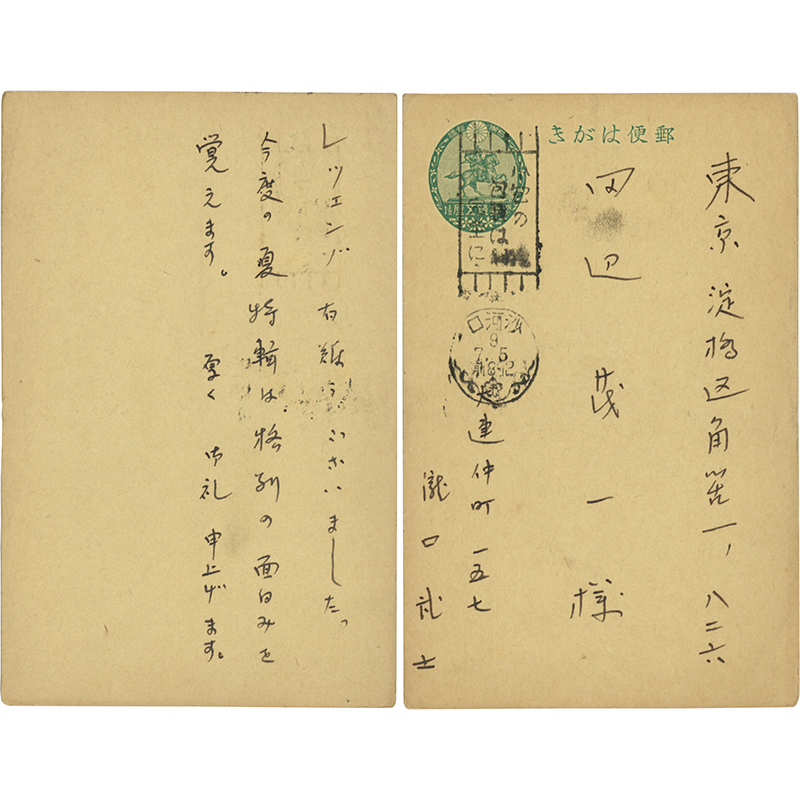 レツェンゾ 有難うございました。
今度の夏特輯は格別の面白みを
覚えます。 厚く 御礼 申上げます。
郵便はがき
東京淀橋区角筈一ノ八二六
田辺茂一様
沙河口
9
7.5
大連仲町一五七
瀧口武士